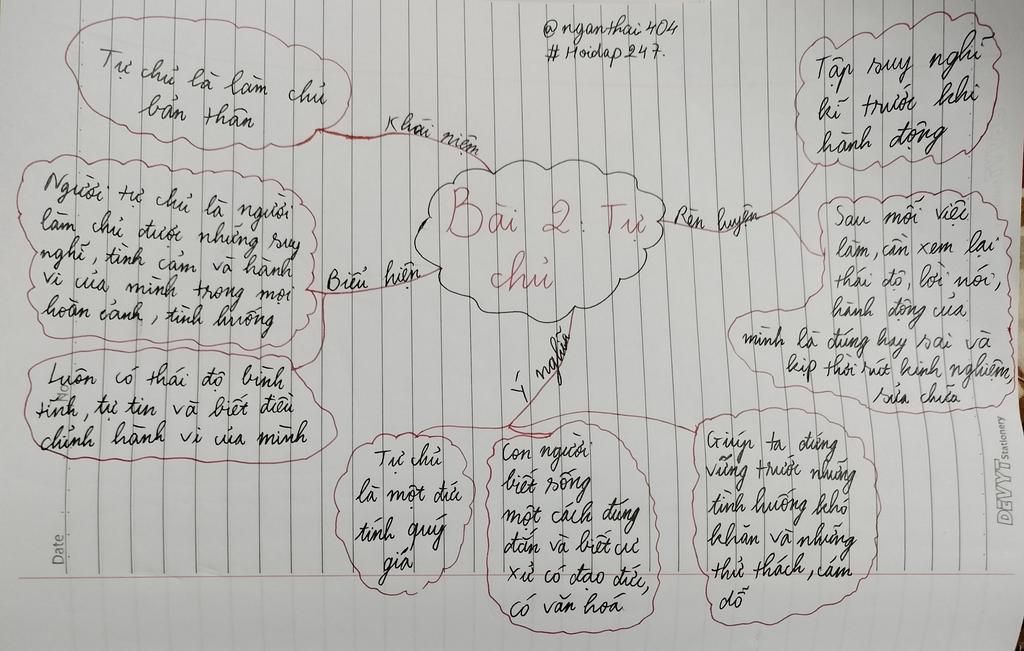 @nganthai404
# Hoidap247.
Bài 2: Tự
chủ
Khái niệm
Tự chủ là làm chủ
bản thân
Biểu hiện
Người tự chủ là người
làm chủ được những suy
nghĩ, tình cảm và hành
vi của mình trong mọi
hoàn cảnh, tình huống
Luôn có thái độ bình
tĩnh, tự tin và biết điều
chỉnh hành vi của mình
Ý nghĩa
Tự chủ
là một đức
tính quý
giá
Con người
biết sống
một cách đúng
đắn và biết cư
xử có đạo đức,
có văn hoá
Giúp ta đứng
vững trước những
tình huống khó
khăn và những
thử thách, cám
dỗ
Rèn luyện
Tập suy nghĩ
kĩ trước khi
hành động
Sau mỗi việc
làm, cần xem lại
thái độ, lời nói,
hành động của
mình là đúng hay sai và
kịp thời rút kinh nghiệm,
sửa chữa
Date
No
DEVYT Stationery